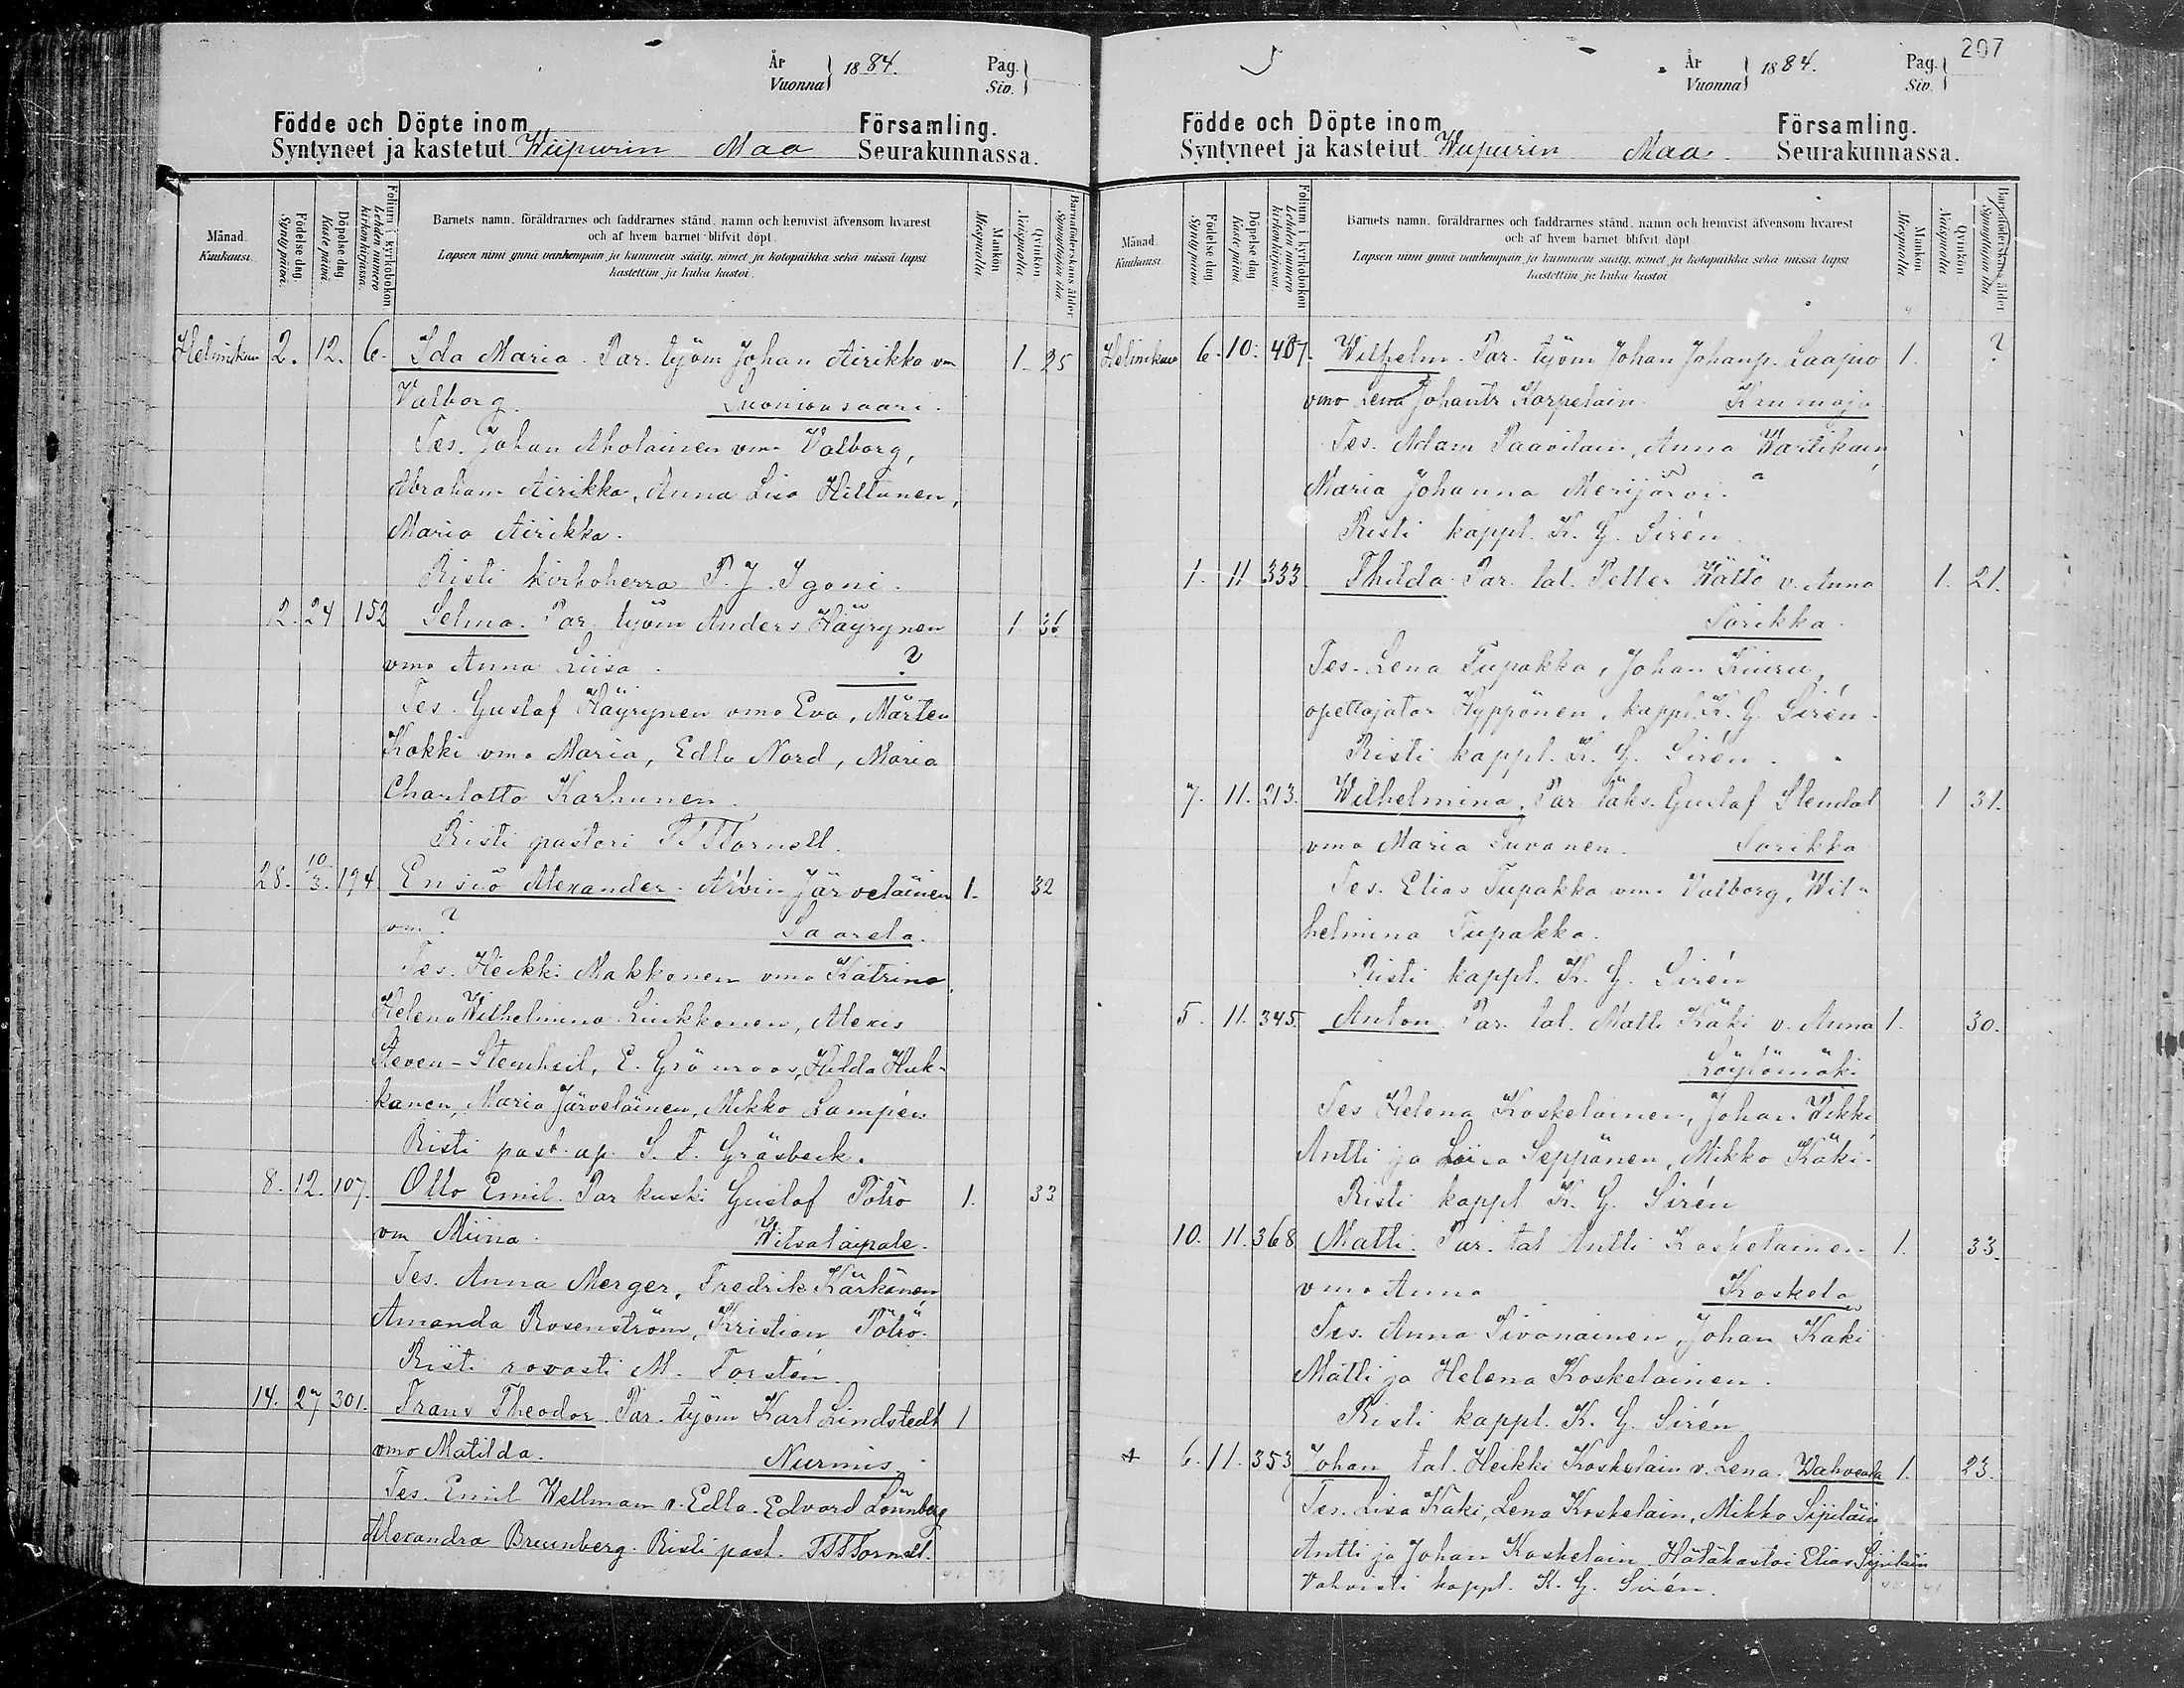 År
Vuonna
1884.
Pag.
Siv.
Födde och Döpte inom
Församling.
Syntyneet ja kastetut Wiipurin Maa Seurakunnassa.
Månad.
Kuukausi.
Födelse dag.
Syntypäivä.
Döpelse dag.
Kastepäivä.
Folium i kyrkoboken
Lehden numero kirkonkirjassa.
Barnets namn, föräldrarnes och faddrarnes stånd, namn och hemvist äfvensom hvarest
och af hvem barnet blifvit döpt.
Lapsen nimi ynnä vanhempain ja kummein sääty, nimet ja kotopaikka sekä missä lapsi
kastettiin ja kuka kastoi.
Mankön.
Miespuolta.
Qvinkön.
Naispuolta.
Barnaföderskans ålder.
Synnyttäjän ikä.
Helmikuu 2. 12. 6. Ida Maria. Par. työm Johan Airikka vm 1. 25
Valborg. Suonionsaari.
Tes. Johan Aholainen vm. Valborg,
Abraham Airikka, Anna Lisa Hiltunen,
Maria Airikka.
Risti kirkoherra P. J. Igoni.
2. 24 152 Selma. Par. työm Anders Häyrynen 1 36
vmo Anna Liisa. ?
Tes. Gustaf Häyrynen vmo Eva, Mårten
Kokki vmo Maria, Edla Nord, Maria
Charlotta Karhunen.
Risti pastori
28. 10/3. 194 Ensio Alexander. Arvin Järveläinen 1. 32
vm ? Saarela.
Tes. Heikki Makkonen vmo Katrina,
Helena Wilhelmina Liukkonen, Alexis
Steven-Steinheil, E. Grönroos, Hilda Huk-
kanen, Maria Järveläinen, Mikko Lampén
Risti past. ap. S. F. Gräsbeck.
8. 12. 107. Otto Emil. Par kuski Gustaf Pötrö 1. 33
vm Miina. Witsataipale.
Tes. Anna Merger, Fredrik Kärkönen,
Amanda Rosenström, Kristian Pötrö.
Risti rovasti M. Forstén.
14. 27 301. Frans Theodor. Par. työm Karl Lindstedt 1
vmo Matilda. Nurmis.
Tes. Emil Wellman v. Edla. Edvard Lönnberg
Alexandra Brunnberg. Risti past.
207
År
Vuonna
1884.
Pag.
Siv.
Födde och Döpte inom
Församling.
Syntyneet ja kastetut Wiipurin Maa. Seurakunnassa.
Månad.
Kuukausi.
Födelse dag.
Syntypäivä.
Döpelse dag.
Kastepäivä.
Folium i kyrkoboken
Lehden numero kirkonkirjassa.
Barnets namn, föräldrarnes och faddrarnes stånd, namn och hemvist äfvensom hvarest
och af hvem barnet blifvit döpt
Lapsen nimi ynnä vanhempain ja kummein sääty, nimet ja kotopaikka sekä missä lapsi
kastettiin ja kuka kastoi
Mankön.
Miespuolta.
Qvinkön.
Naispuolta.
Barnaföderskans ålder
Synnyttäjän ikä
Helmikuu 6. 10. 407. Wilhelm. Par. työm Johan Johanp. Laapio 1. ?
vmo Lena Johantr Korpelain.
Tes. Adam Paavilain, Anna Wartikain,
Maria Johanna Merijärvi.
Risti kappl. K. G. Sirén.
1. 11 333. Thilda. Par. tal. Petter Wättö v. Anna 1. 21.
Sorikka.
Tes. Lena Tupakka, Johan Kiuru,
opettajatar Hyppönen, kappl. K. G. Sirén.
Risti kappl. K. G. Sirén.
7. 11. 213. Wilhelmina. Par. Gustaf Stendal 1 31.
vmo Maria Suvanen. Sorikka
Tes. Elias Tupakka vm. Valborg, Wil-
helmina Tupakka.
Risti kappl. K. G. Sirén
5. 11. 345. Anton. Par. tal. Matti Käki v. Anna 1. 30.
Löytömäki
Tes Helena Koskelainen, Johan Wikki
Antti ja Liisa Seppänen, Mikko Käki.
Risti kappl K. G. Sirén
10. 11. 368 Matti. Par. tal Antti Koskelainen 1. 33.
vmo Anna Koskela
Tes. Anna Sivonainen, Johan Käki
Matti ja Helena Koskelainen.
Risti kappl. K. G. Sirén
6. 11. 353 Johan tal. Heikki Koskelain v. Lena. 1. 23.
Tes. Lisa Käki, Lena Koskelain, Mikko Sipiläin,
Antti ja Johan Koskelain. Hätäkastoi Elias Sipiläin
Vahvisti kappl. K. G. Sirén.